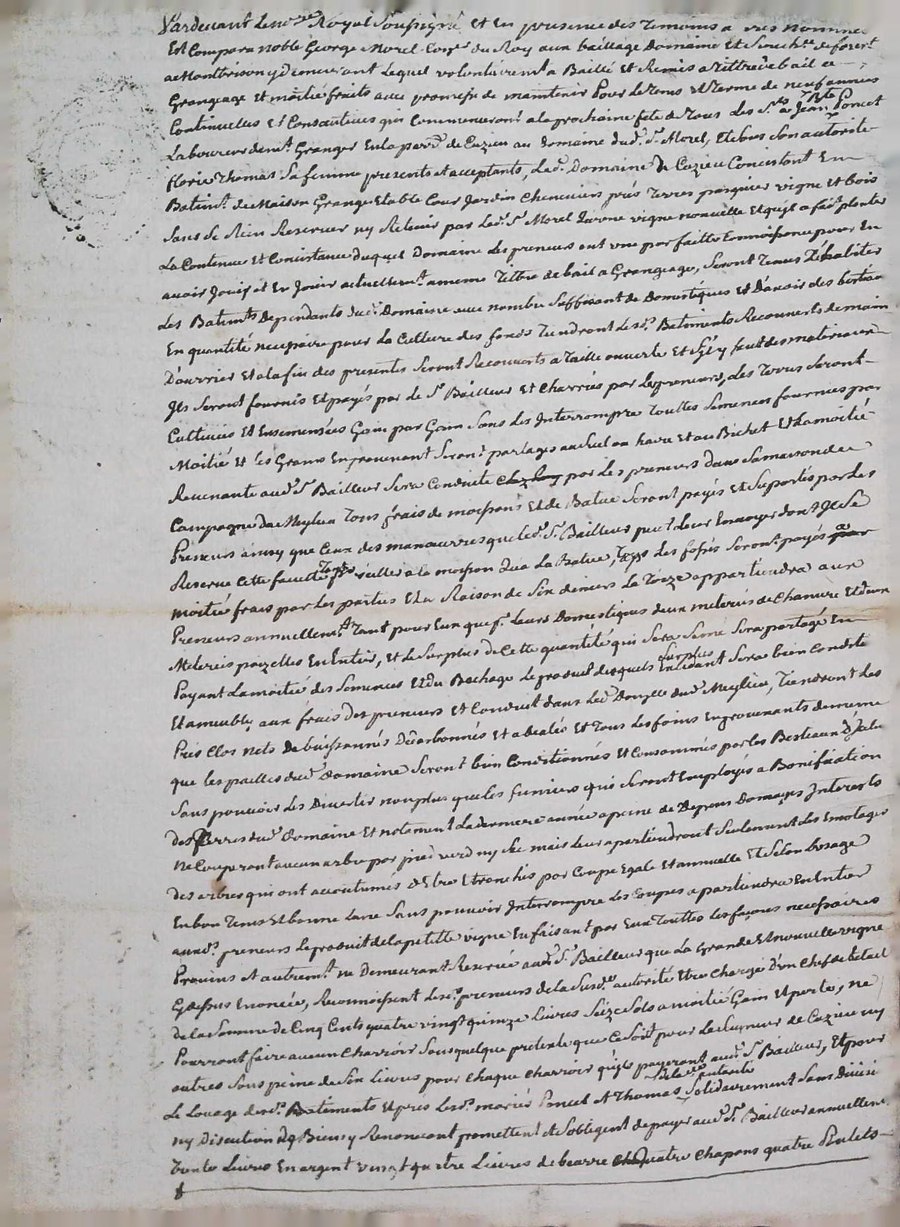 Pardevant Le no.re Royal Soussigné Et En presence des Temoins a vres nommes
Est Comparu noble George Morel Con.er du Roy aux bailliage Domaine Et Senéch.ée de forest
a Montbrison y demeurant Lequel volontairem.t a Baillé Et Remis a tittre de bail a
Grangeage Et moitié fruits avec promesse de maintenir Pour Le tems et Terme de neuf années
Continuelles Et Consecutives qui Commenceront a la prochaine fete de Tous Les S.ts a Jean B.te Poncet
Laboureur dem.t Granger En la par.se de Cuzieu au domaine dud. S.r Morel, Et sous son autorité
florie Thomas Sa femme presents et acceptants, Led. Domaine de Cuzieu Concistant En
Batim.ts de Maison Grange Etable Cour Jardin Cheneviers prés Terres pasquier vigne Et bois
Sans Se Rien Reserver ny Retenir par Led. S.r Morel qu'une vigne nouvelle Et qu'il a fait planter
La Contenue Et Concistance duquel Domaine Les preneurs ont une parfaitte Connoissance pour En
avoir Jouis et En Jouir actuellem.t a meme Tittre de bail a Grangeage, Seront Tenus d'habiter
Les Batim.ts Dependants dud. Domaine avec nombre Suffisant de Domestiques Et d'avoir des bestiaux
En quantité necessaire pour La Culture des fonds Tiendront Lesd. Batiments Recouverts de main
D'ouvrier Et a la fin des presentes Seront Recouverts a Taille ouverte Et S'il y faut des materiaux
Ils Seront fournis Et payés par le S.r Bailleur Et Charriés par Les preneurs, Les Terres Seront
Cultivées Et Ensemensées Gain par Gain Sans Les Interrompre Touttes Semences fournies par
Moitié Et Les Grains En provenant Seront partagés au Suel ou haire Et au Bichet Et La moitié
Revenante aud. S.r Bailleur Sera Conduite chez luy par Les preneurs dans Sa maison de
Campagne de Meylieu Tous frais de moissons Et de Batue Seront payés Et Suportés par Les
Preneurs ainsy que Ceux des manoeuvres que Led. S.r Bailleur peut Leur Envoyer dont Il Se
Reserve Cette faculté pour veiller a la moisson Et a La Batue, Les fossés Seront payés par
moitié frais par Les parties Et a Raison de Six deniers La Toize appartiendra aux
Preneurs annuellem.t Tant pour Eux que p.r Leurs Domestiques deux meterées de Chanvre Et d'un
Meterée pezelles En Entier, Et Le Surplus de Cette quantité qui Sera Semé Sera partagé En
Payant La moitié des Semences Et du Bechage Le produit desquels surplus Excedant Sera bien Condité
Et ameubly aux frais des preneurs Et Conduit dans Led. Domaine dud. Meylieu, Tiendront Les
Prés Clos nets de buissonnés Decarbonnés Et adealés Et Tous Les foins En provenants de meme
que les pailles dud. Domaine Seront bien Conditionnés Et Consommés par les Bestiaux d'Icelui
Sans pouvoir Les Divertir non plus que les fumiers qui Seront Employés a Bonification
des Terres dud. Domaine Et notament La derniere année a peine de Depens Domages Interests
Ne Couperont aucun arbre par pied verd ny Sec mais Leur apartiendront Seulement Les Emotages
des arbres qui ont accoutumés d'Etre Etronchés par Coupe Egale Et annuelle Et Selon L'usage
En bon Tems Et bonne Lune Sans pouvoir Interrompre Les Coupes apartiendra En Entier
auxd. preneurs Le produit de la petitte vigne En faisant par Eux Touttes Les façons necessaires
Provins Et autrem.t ne Demeurant Reservée aud. S.r Bailleur que La Grande Et nouvelle vigne
Cy dessus Enoncée, Reconnoissent Lesd. preneurs de La Susd. autorité Etre Chargés d'un Chef de betail
de la Somme de Cinq Cents quatre vingt quinze Livres Seize Sols a moitié Gain Et perte, ne
Pourront faire aucun Charroir Sous quelque pretexte que Ce Soit pour Le Seigneur de Cuzieu ny
autres Sous peine de Six Livres pour chaque Charroir qu'ils payeront aud. S.r Bailleur, Et pour
Le Louage desd. Batiments Et prés Lesd. mariés Poncet Et Thomas de la d. autorité Solidairement Sans Division
ny Discution de Biens y Renoncant promettent Et S'obligent de payer aud. S.r Bailleur annuellem.t
Trente Livres En argent vingt quatre Livres de beurre quatre Chapons quatre Poulets